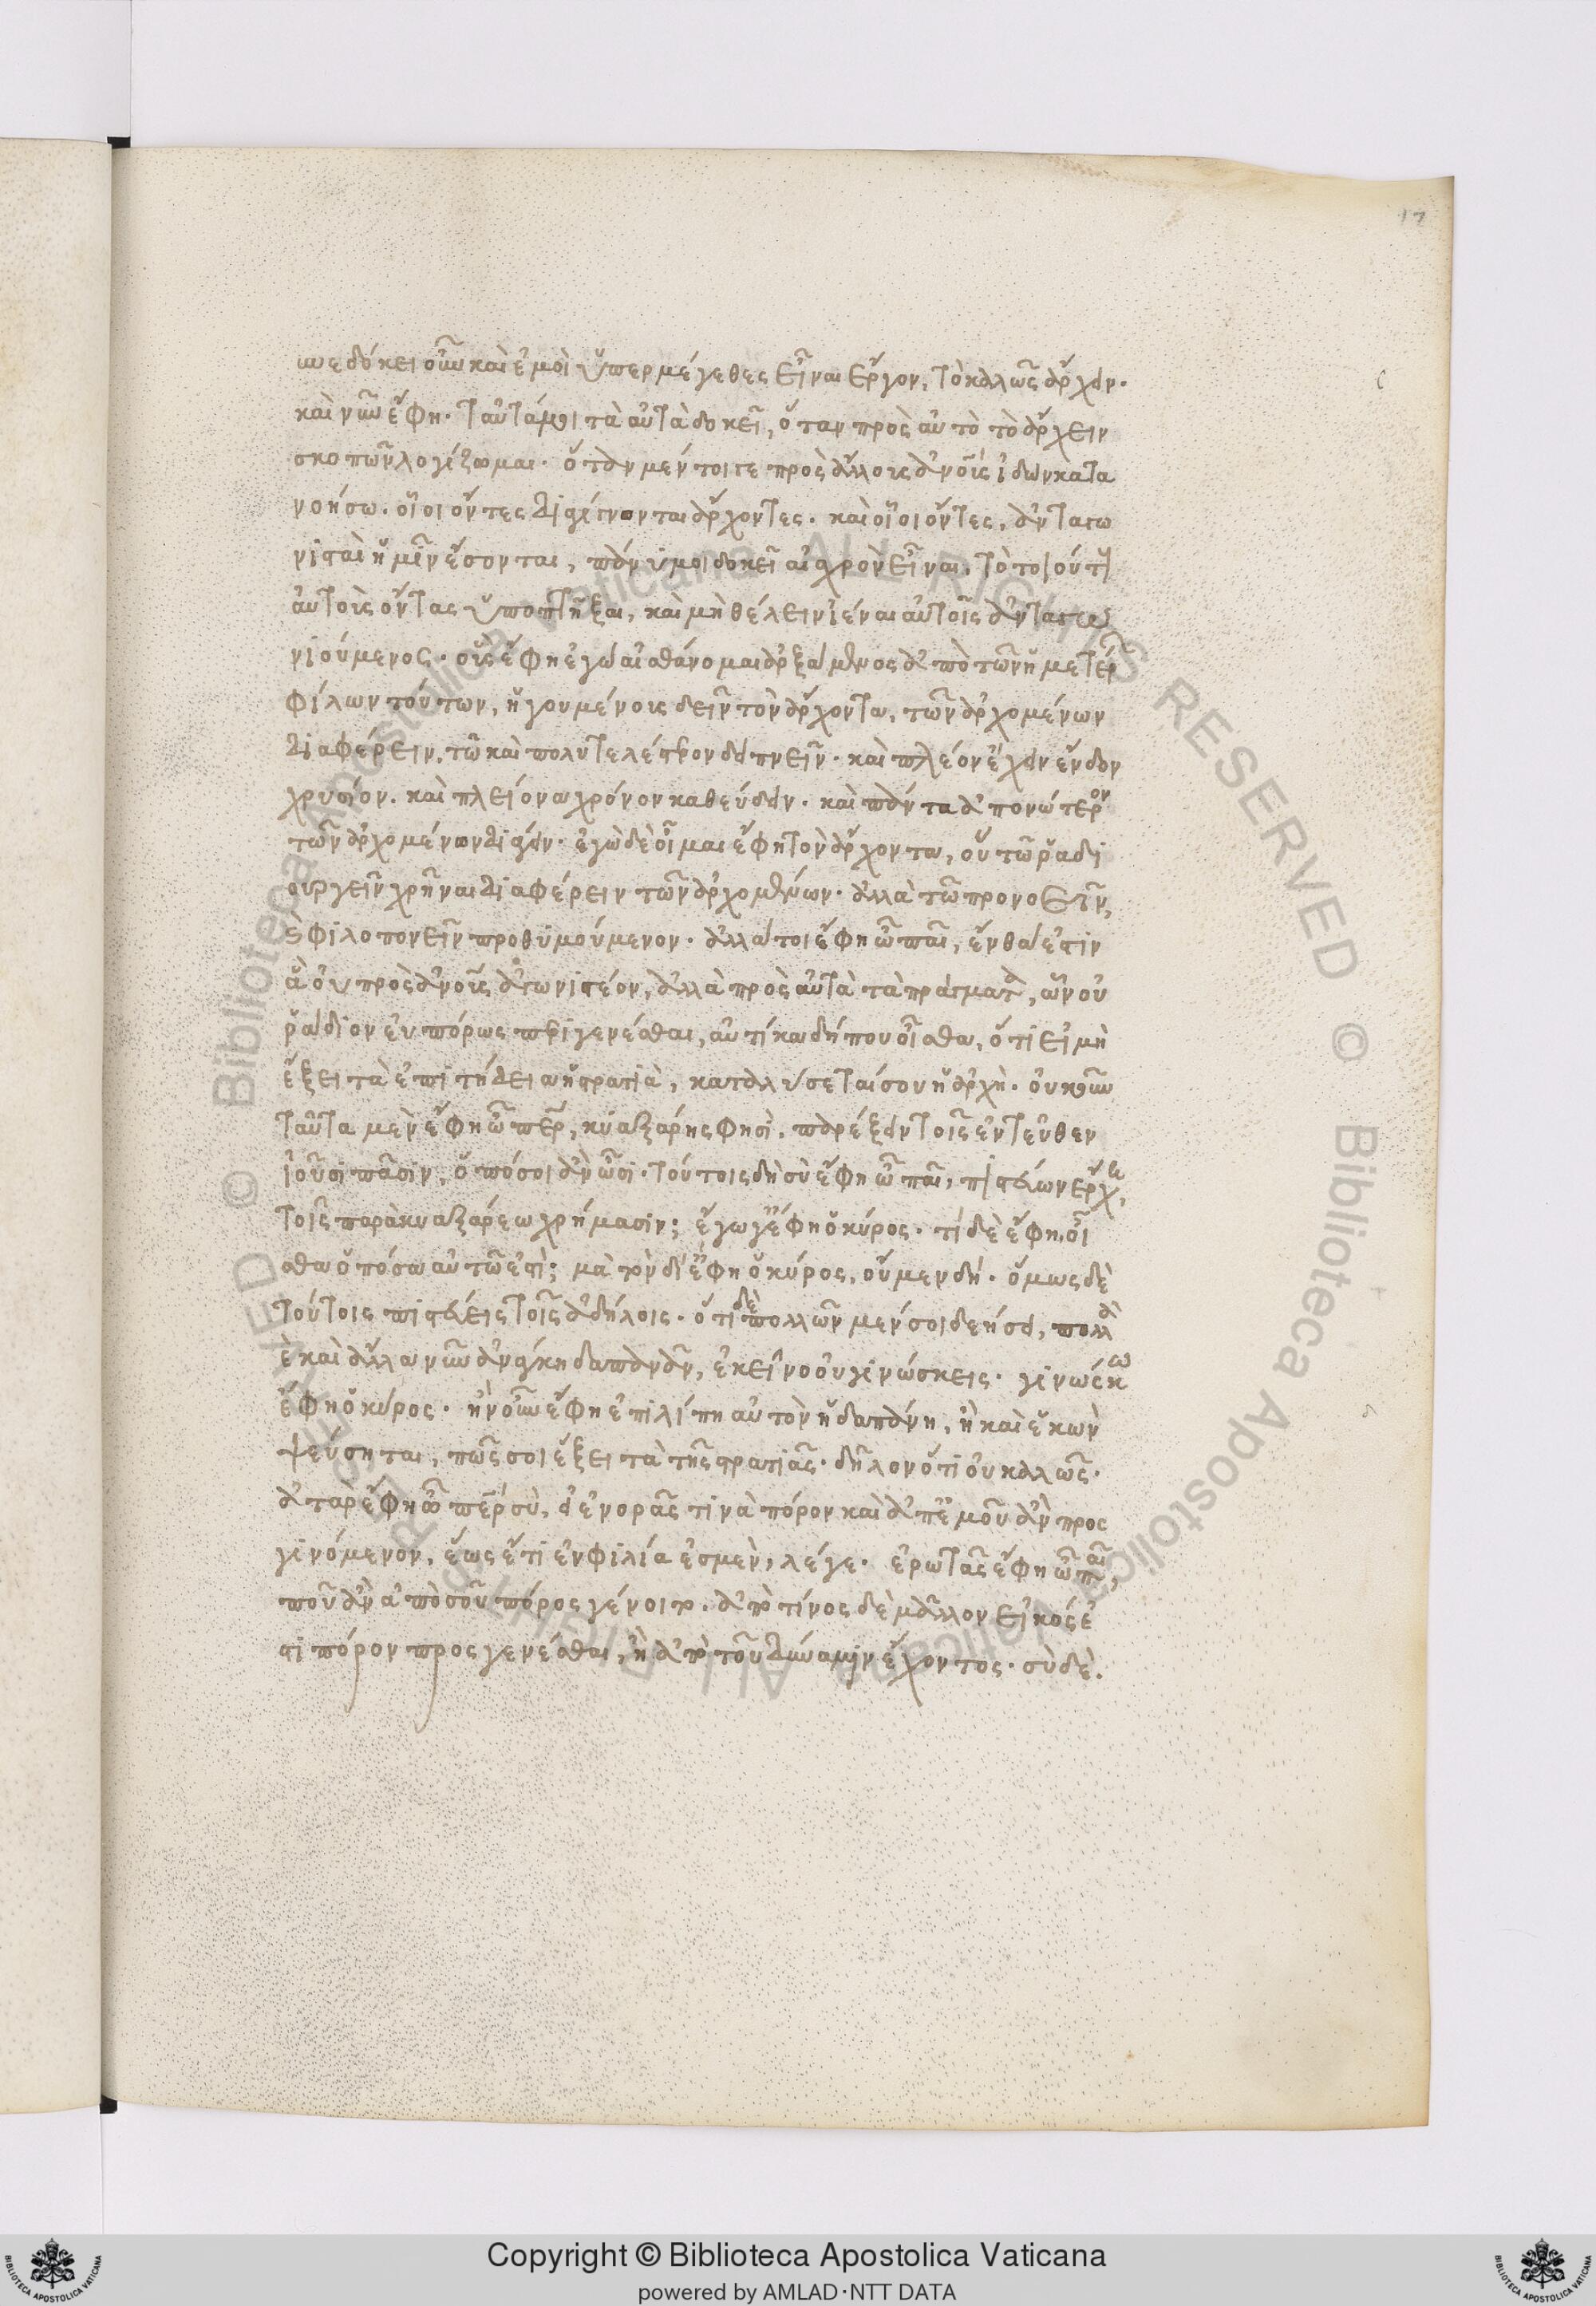 17
συνεδόκει οὖν καὶ ἐμοὶ ὑπερμέγεθες εἶναι ἔργον, τὸ καλῶς ἄρχειν.
καὶ νῦν ἔφη. ταῦτά μοι τὰ αὐτὰ δοκεῖ, ὅταν πρὸς αὐτὸ τὸ ἄρχειν
σκοπῶν λογίζωμαι. ὅταν μέντοιγε πρὸς ἄλλους ἀνους ἰδὼν κατα
νοήσω. οἷοι ὄντες διαγίγνονται ἄρχοντες. καὶ οἷοι ὄντες, ἀνταγω
νισταὶ ἡμῖν ἔσονται, πάνυ μοι δοκεῖ αἰσχρὸν εἶναι, τὸ τοιούτους
αὐτοὺς ὄντας ὑποπτῆξαι, καὶ μὴ θέλειν ἰέναι αὐτοῖς ἀνταγω
νιούμενος. οὓς ἔφη ἐγὼ αἰσθάνομαι ἀρξάμενος ἀπὸ τῶν ἡμετέρ
φίλων τούτων, ἡγουμένους δεῖν τὸν ἄρχοντα, τῶν ἀρχομένων
διαφέρειν, τῶ καὶ πολυτελέστερον δειπνεῖν. καὶ πλέον ἔχειν ἔνδον
χρυσίον. καὶ πλείονα χρόνον καθεύδειν. καὶ πάντα ἀπονώτερον
τῶν ἀρχομένων διάγειν. ἐγὼ δὲ οἶμαι ἔφη τὸν ἄρχοντα, οὐ τῶ ῥαδι
ουργεῖν χρῆναι διαφέρειν τῶν ἀρχομένων. ἀλλὰ τῶ προνοεῖν,
καὶ φιλοπονεῖν προθυμούμενον. ἀλλά τοι ἔφη ὦ παῖ, ἔνθά ἐστιν
ἃ οὐ πρὸς ἀνους ἀγωνιστέον, ἀλλὰ πρὸς αὐτὰ τὰ πράγματα, ὧν οὐ
ῥάδιον εὐπόρως περιγενέσθαι, αὐτίκα δήπου οἶσθα, ὅτι εἰ μὴ
ἕξει τὰ ἐπιτήδεια ἡ στρατιὰ, καταλύσεταί σου ἡ ἀρχὴ. οὐκοῦν
ταῦτα μὲν ἔφη ὦ περ, κυαξάρης φησὶ. παρέξειν τοῖς ἐντεῦθεν
ἰοῦσι πᾶσιν, ὁπόσοι ἂν ὦσι. τούτοις δὴ σὺ ἔφη ὦ παῖ, πιστεύων ἔρχ
τοῖς παρὰ κυαξάρεω χρήμασιν; ἔγωγε ἔφη ὁ κύρος. τί δὲ ἔφη, οἶ
σθα ὁπόσα αὐτῶ ἐστὶ; μὰ τὸν δί ἔφη ὁ κύρος, οὐ μὲν δή. ὅμως δὲ
τούτοις πιστεύεις τοῖς ἀδήλοις. ὅτι δὲ πολλῶν μέν σοι δεήσει, πολλὰ
δὲ καὶ ἄλλα νῦν ἀνάγκη δαπανᾶν, ἐκεῖνο οὐ γινώσκεις. γινώσκω
ἔφη ὁ κύρος. ἢν οὖν ἔφη ἐπιλίπη αὐτὸν ἡ δαπάνη, ἢ καὶ ἑκὼν
ψεύσηται, πῶς σοι ἕξει τὰ τῆς στρατιᾶς. δῆλον ὅτι οὐ καλῶς.
ἀτὰρ ἔφη ὦ περ σὺ, εἰ ἐνορᾶς τινὰ πόρον καὶ ἀπ' ἐμοῦ ἂν προς
γινόμενον, ἕως ἔτι ἐν φιλία ἐσμὲν, λέγε. ἐρωτᾶς ἔφη ὦ παῖ,
ποῦ ἂν ἀπὸ σοῦ πόρος γένοιτο. ἀπὸ τίνος δὲ μᾶλλον εἰκός ἐ
στι πόρον προσγενέσθαι, ἢ ἀπὸ τοῦ δύναμιν ἔχοντος. σὺ δὲ.
Copyright © Biblioteca Apostolica Vaticana
powered by AMLAD·NTT DATA